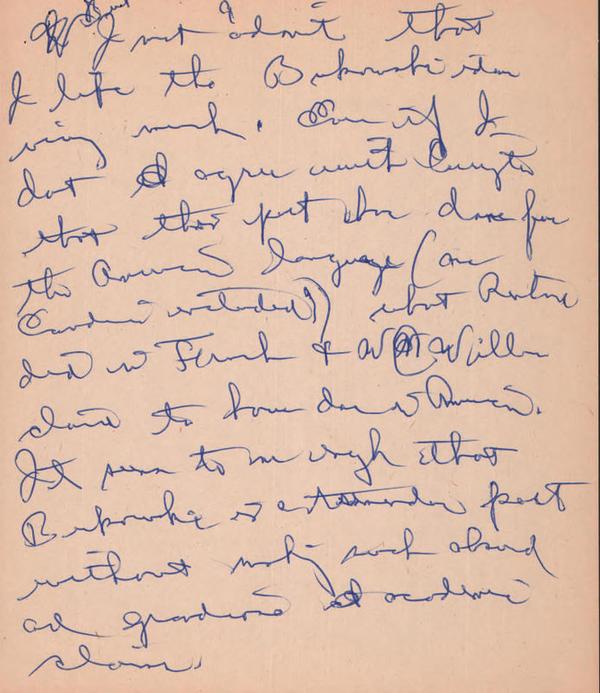 But I must admit that
I like the Bukowski idea
very much. Even if I
don't agree with Corrington
that this poet has done for
the American language (are
Canadians included?) what Rimbaud
did in French & W C Williams
claims to have done in American.
It seems to me enough that
Bukowski is a tremendous poet
without making such absurd
and grandiose academic
claims.